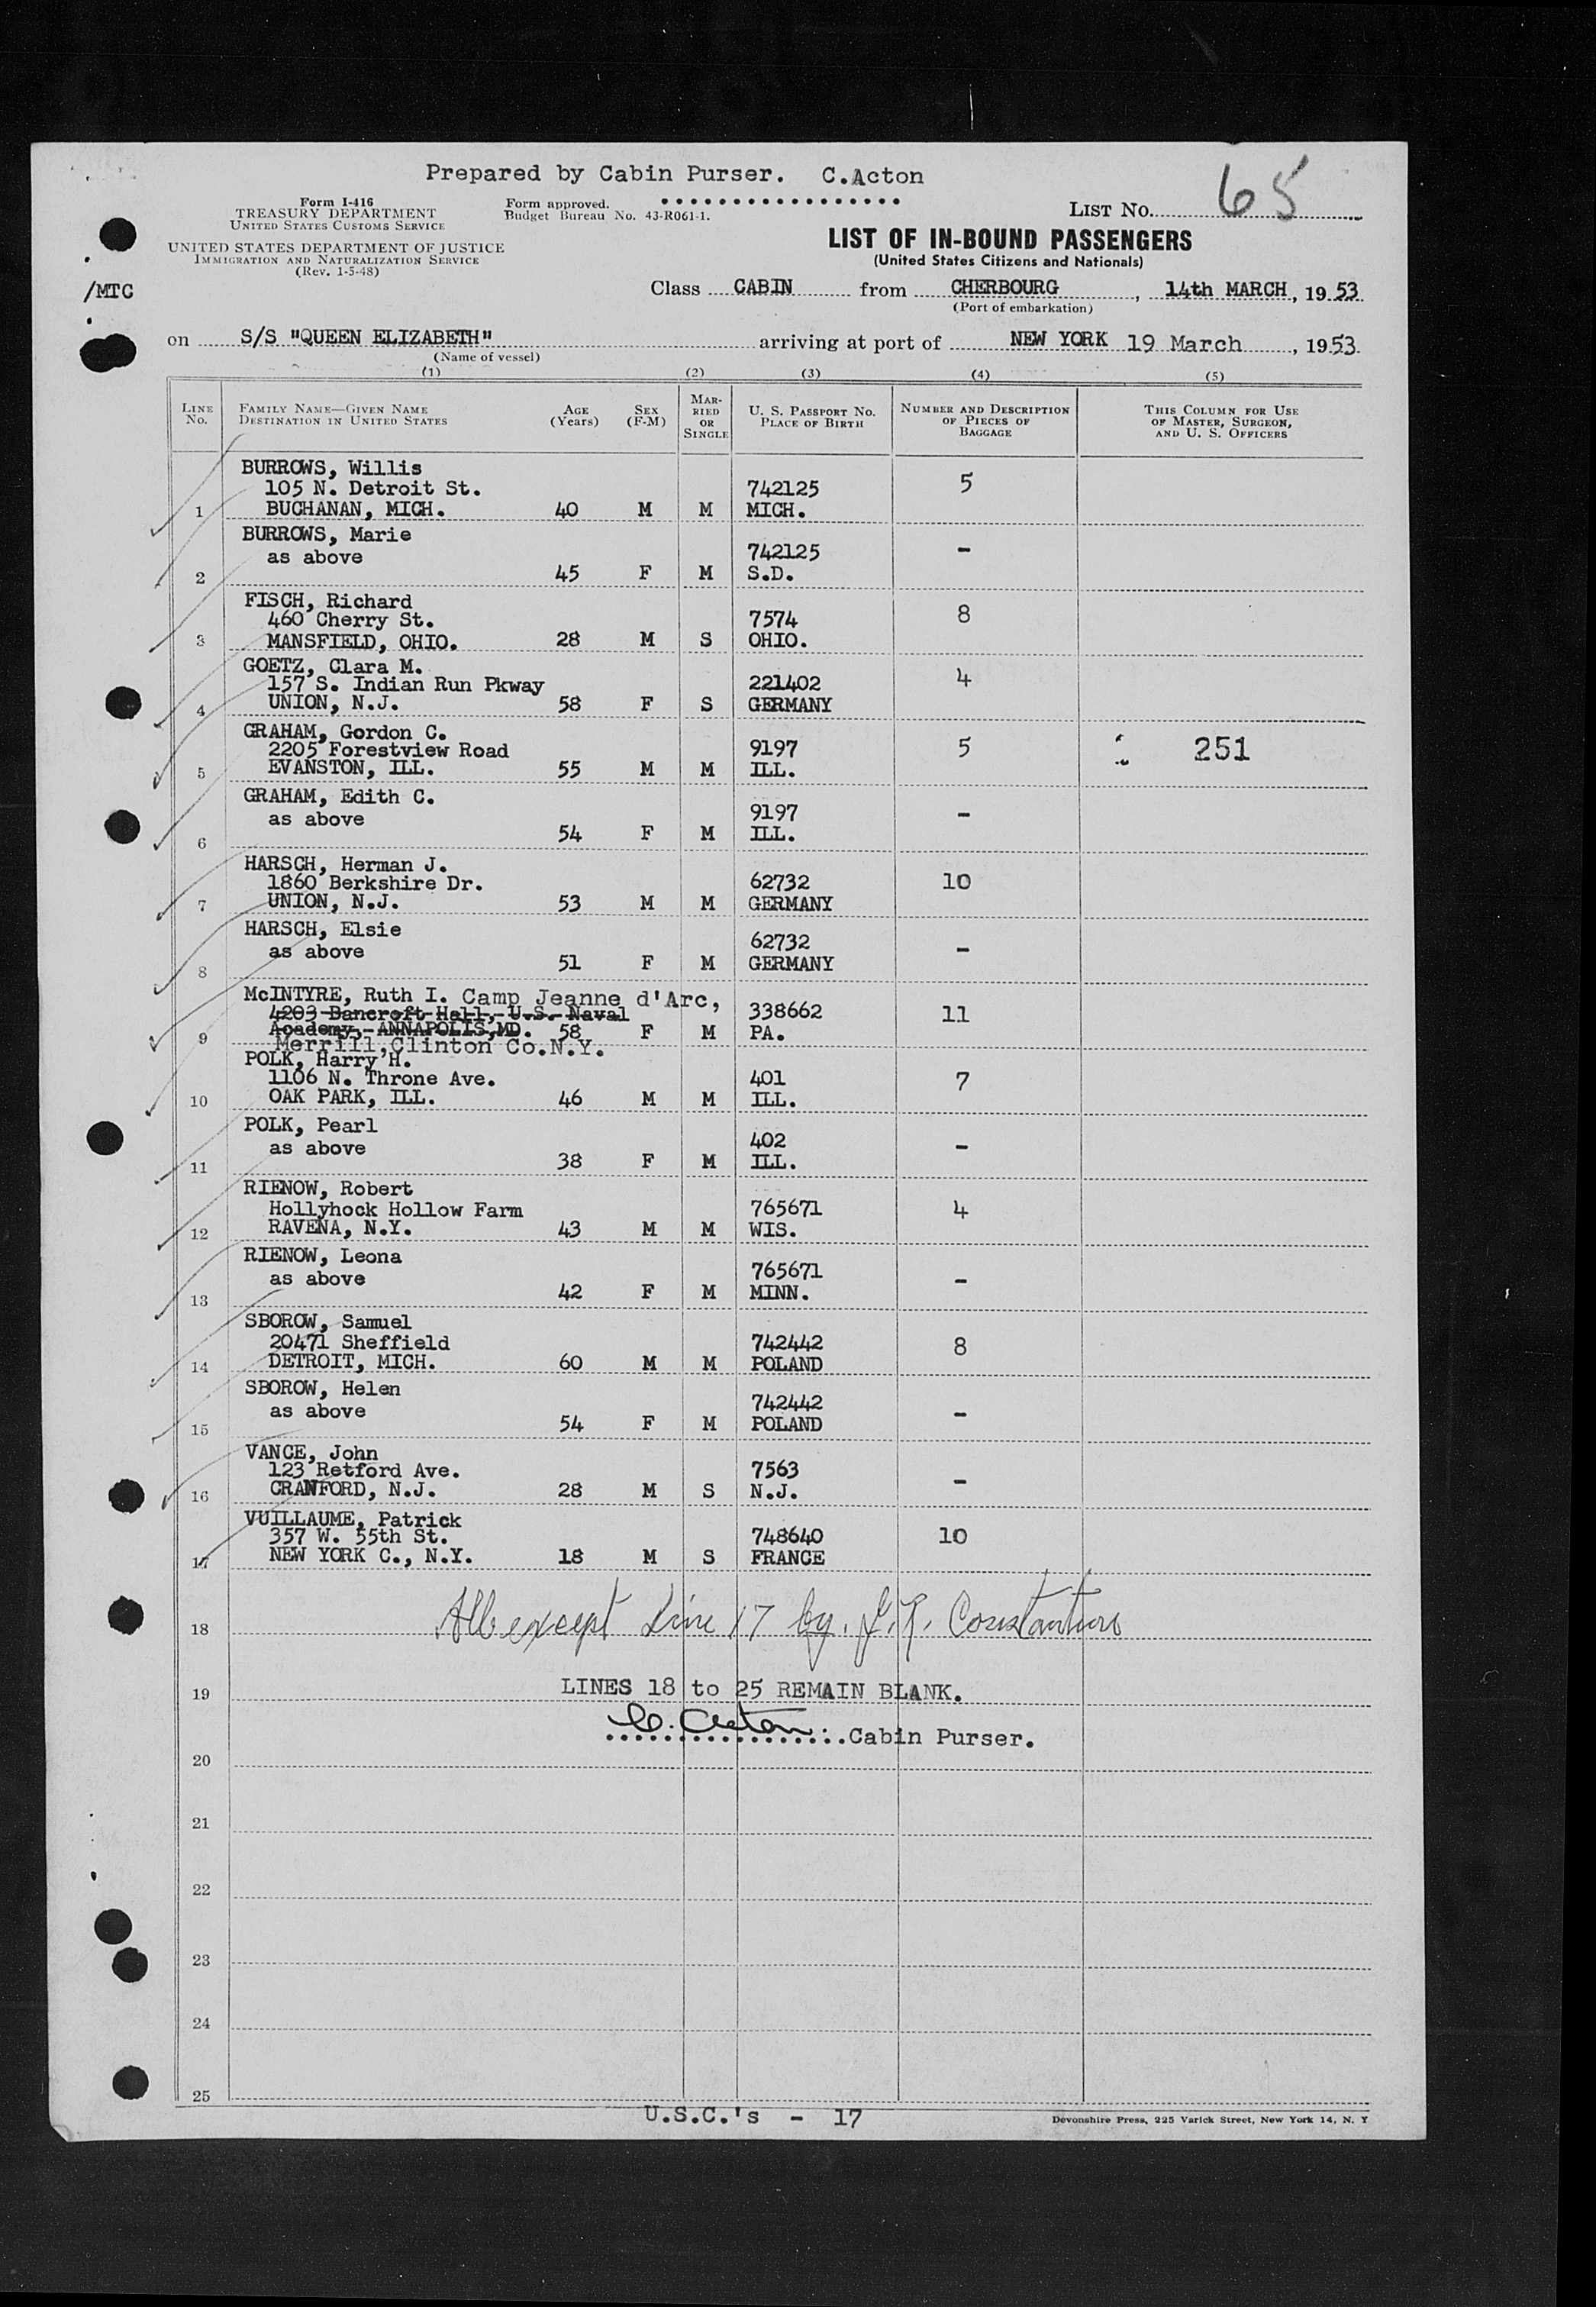 Prepared by Cabin Purser. C.Acton
65
Form I-416
TREASURY DEPARTMENT
UNITED STATES CUSTOMS SERVICE
Form approved.
Budget Bureau No. 43-R061-1.
LIST No.
UNITED STATES DEPARTMENT OF JUSTICE
IMMIGRATION AND NATURALIZATION SERVICE
(Rev. 1-5-48)
LIST OF IN-BOUND PASSENGERS
(United States Citizens and Nationals)
/MTC
Class CABIN from CHERBOURG, 14th MARCH, 1953
(Port of embarkation)
on S/S "QUEEN ELIZABETH" arriving at port of NEW YORK 19 March, 1953
(Name of vessel)
(1) (2) (3) (4) (5)
LINE No.
FAMILY NAME—GIVEN NAME
DESTINATION IN UNITED STATES
AGE (Years)
SEX (F-M)
MARRIED OR SINGLE
U. S. PASSPORT NO.
PLACE OF BIRTH
NUMBER AND DESCRIPTION OF PIECES OF BAGGAGE
THIS COLUMN FOR USE OF MASTER, SURGEON, AND U. S. OFFICERS
BURROWS, Willis
105 N. Detroit St. 742125 5
1 BUCHANAN, MICH. 40 M M MICH.
BURROWS, Marie
as above 742125 -
2 45 F M S.D.
FISCH, Richard
460 Cherry St. 7574 8
3 MANSFIELD, OHIO. 28 M S OHIO.
GOETZ, Clara M.
157 S. Indian Run Pkway 221402 4
4 UNION, N.J. 58 F S GERMANY
GRAHAM, Gordon C.
2205 Forestview Road 9197 5 251
5 EVANSTON, ILL. 55 M M ILL.
GRAHAM, Edith C.
as above 9197 -
6 54 F M ILL.
HARSCH, Herman J.
1860 Berkshire Dr. 62732 10
7 UNION, N.J. 53 M M GERMANY
HARSCH, Elsie
as above 62732 -
8 51 F M GERMANY
McINTYRE, Ruth I. Camp Jeanne d'Arc,
4203 Bancroft Hall, U.S. Naval 338662 11
9 Academy, ANNAPOLIS,MD. 58 F M PA.
Merrill,Clinton Co.N.Y.
POLK, Harry H.
1106 N. Throne Ave. 401 7
10 OAK PARK, ILL. 46 M M ILL.
POLK, Pearl
as above 402 -
11 38 F M ILL.
RIENOW, Robert
Hollyhock Hollow Farm 765671 4
12 RAVENA, N.Y. 43 M M WIS.
RIENOW, Leona
as above 765671 -
13 42 F M MINN.
SBOROW, Samuel
20471 Sheffield 742442 8
14 DETROIT, MICH. 60 M M POLAND
SBOROW, Helen
as above 742442 -
15 54 F M POLAND
VANCE, John
123 Retford Ave. 7563 -
16 CRANFORD, N.J. 28 M S N.J.
VUILLAUME, Patrick
357 W. 55th St. 748640 10
17 NEW YORK C., N.Y. 18 M S FRANCE
All except Line 17 by. J.R.
18
LINES 18 to 25 REMAIN BLANK.
19
C. Acton Cabin Purser.
20
21
22
23
24
25
U.S.C.'s - 17
Devonshire Press, 225 Varick Street, New York 14, N. Y